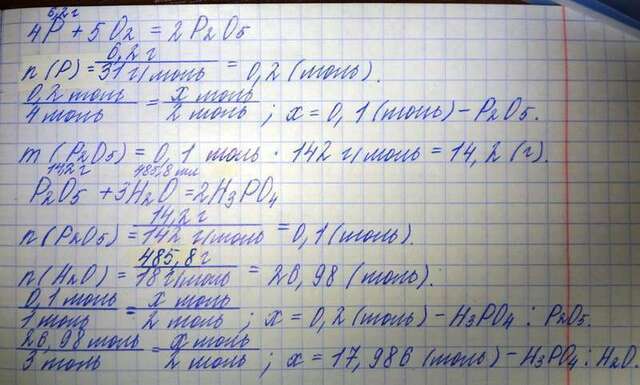 6,2г
4P + 5O2 = 2P2O5
n(P) = 6,2 г / 31 г/моль = 0,2 (моль).
0,2 моль / 4 моль = x моль / 2 моль ; x = 0,1 (моль) – P2O5.
m(P2O5) = 0,1 моль · 142 г/моль = 14,2 (г).
14,2г 485,8 мл
P2O5 + 3H2O = 2H3PO4
n(P2O5) = 14,2 г / 142 г/моль = 0,1 (моль).
n(H2O) = 485,8 г / 18 г/моль = 26,98 (моль).
0,1 моль / 1 моль = x моль / 2 моль ; x = 0,2 (моль) – H3PO4 : P2O5.
26,98 моль / 3 моль = x моль / 2 моль ; x = 17,986 (моль) – H3PO4 : H2O